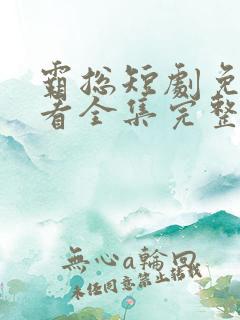 霸总短劇免
看全集完整
無心a輪回
未经同意禁止转载